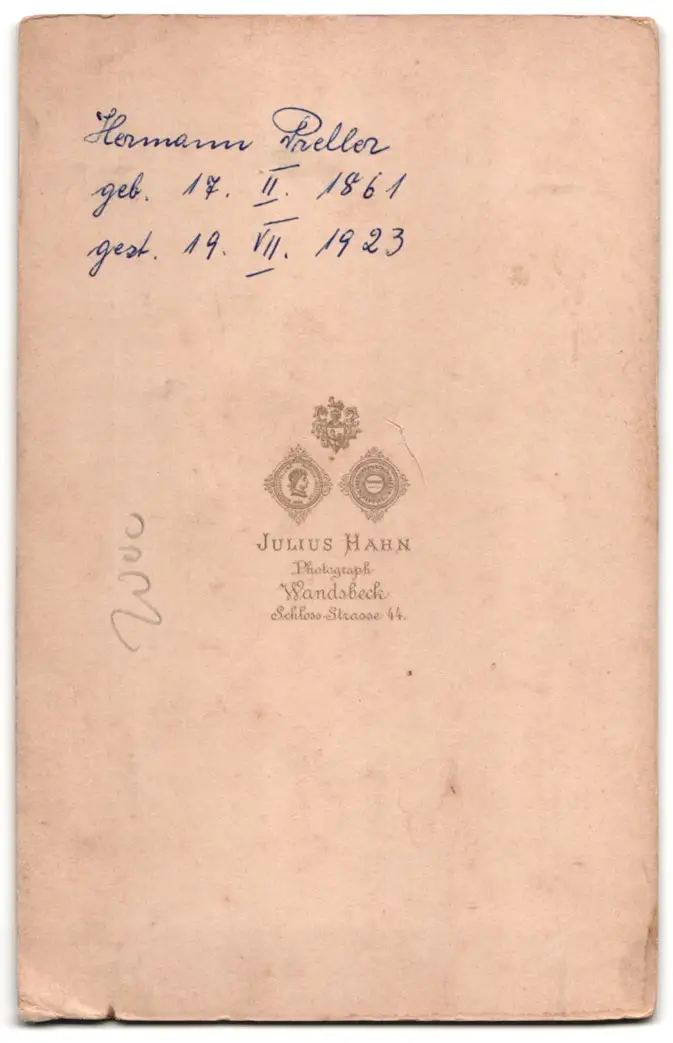 Hermann Preller
geb. 17. II. 1861
gest. 19. VII. 1923
JULIUS HAHN
Photograph
Wandsbeck
Schloss-Strasse 44.